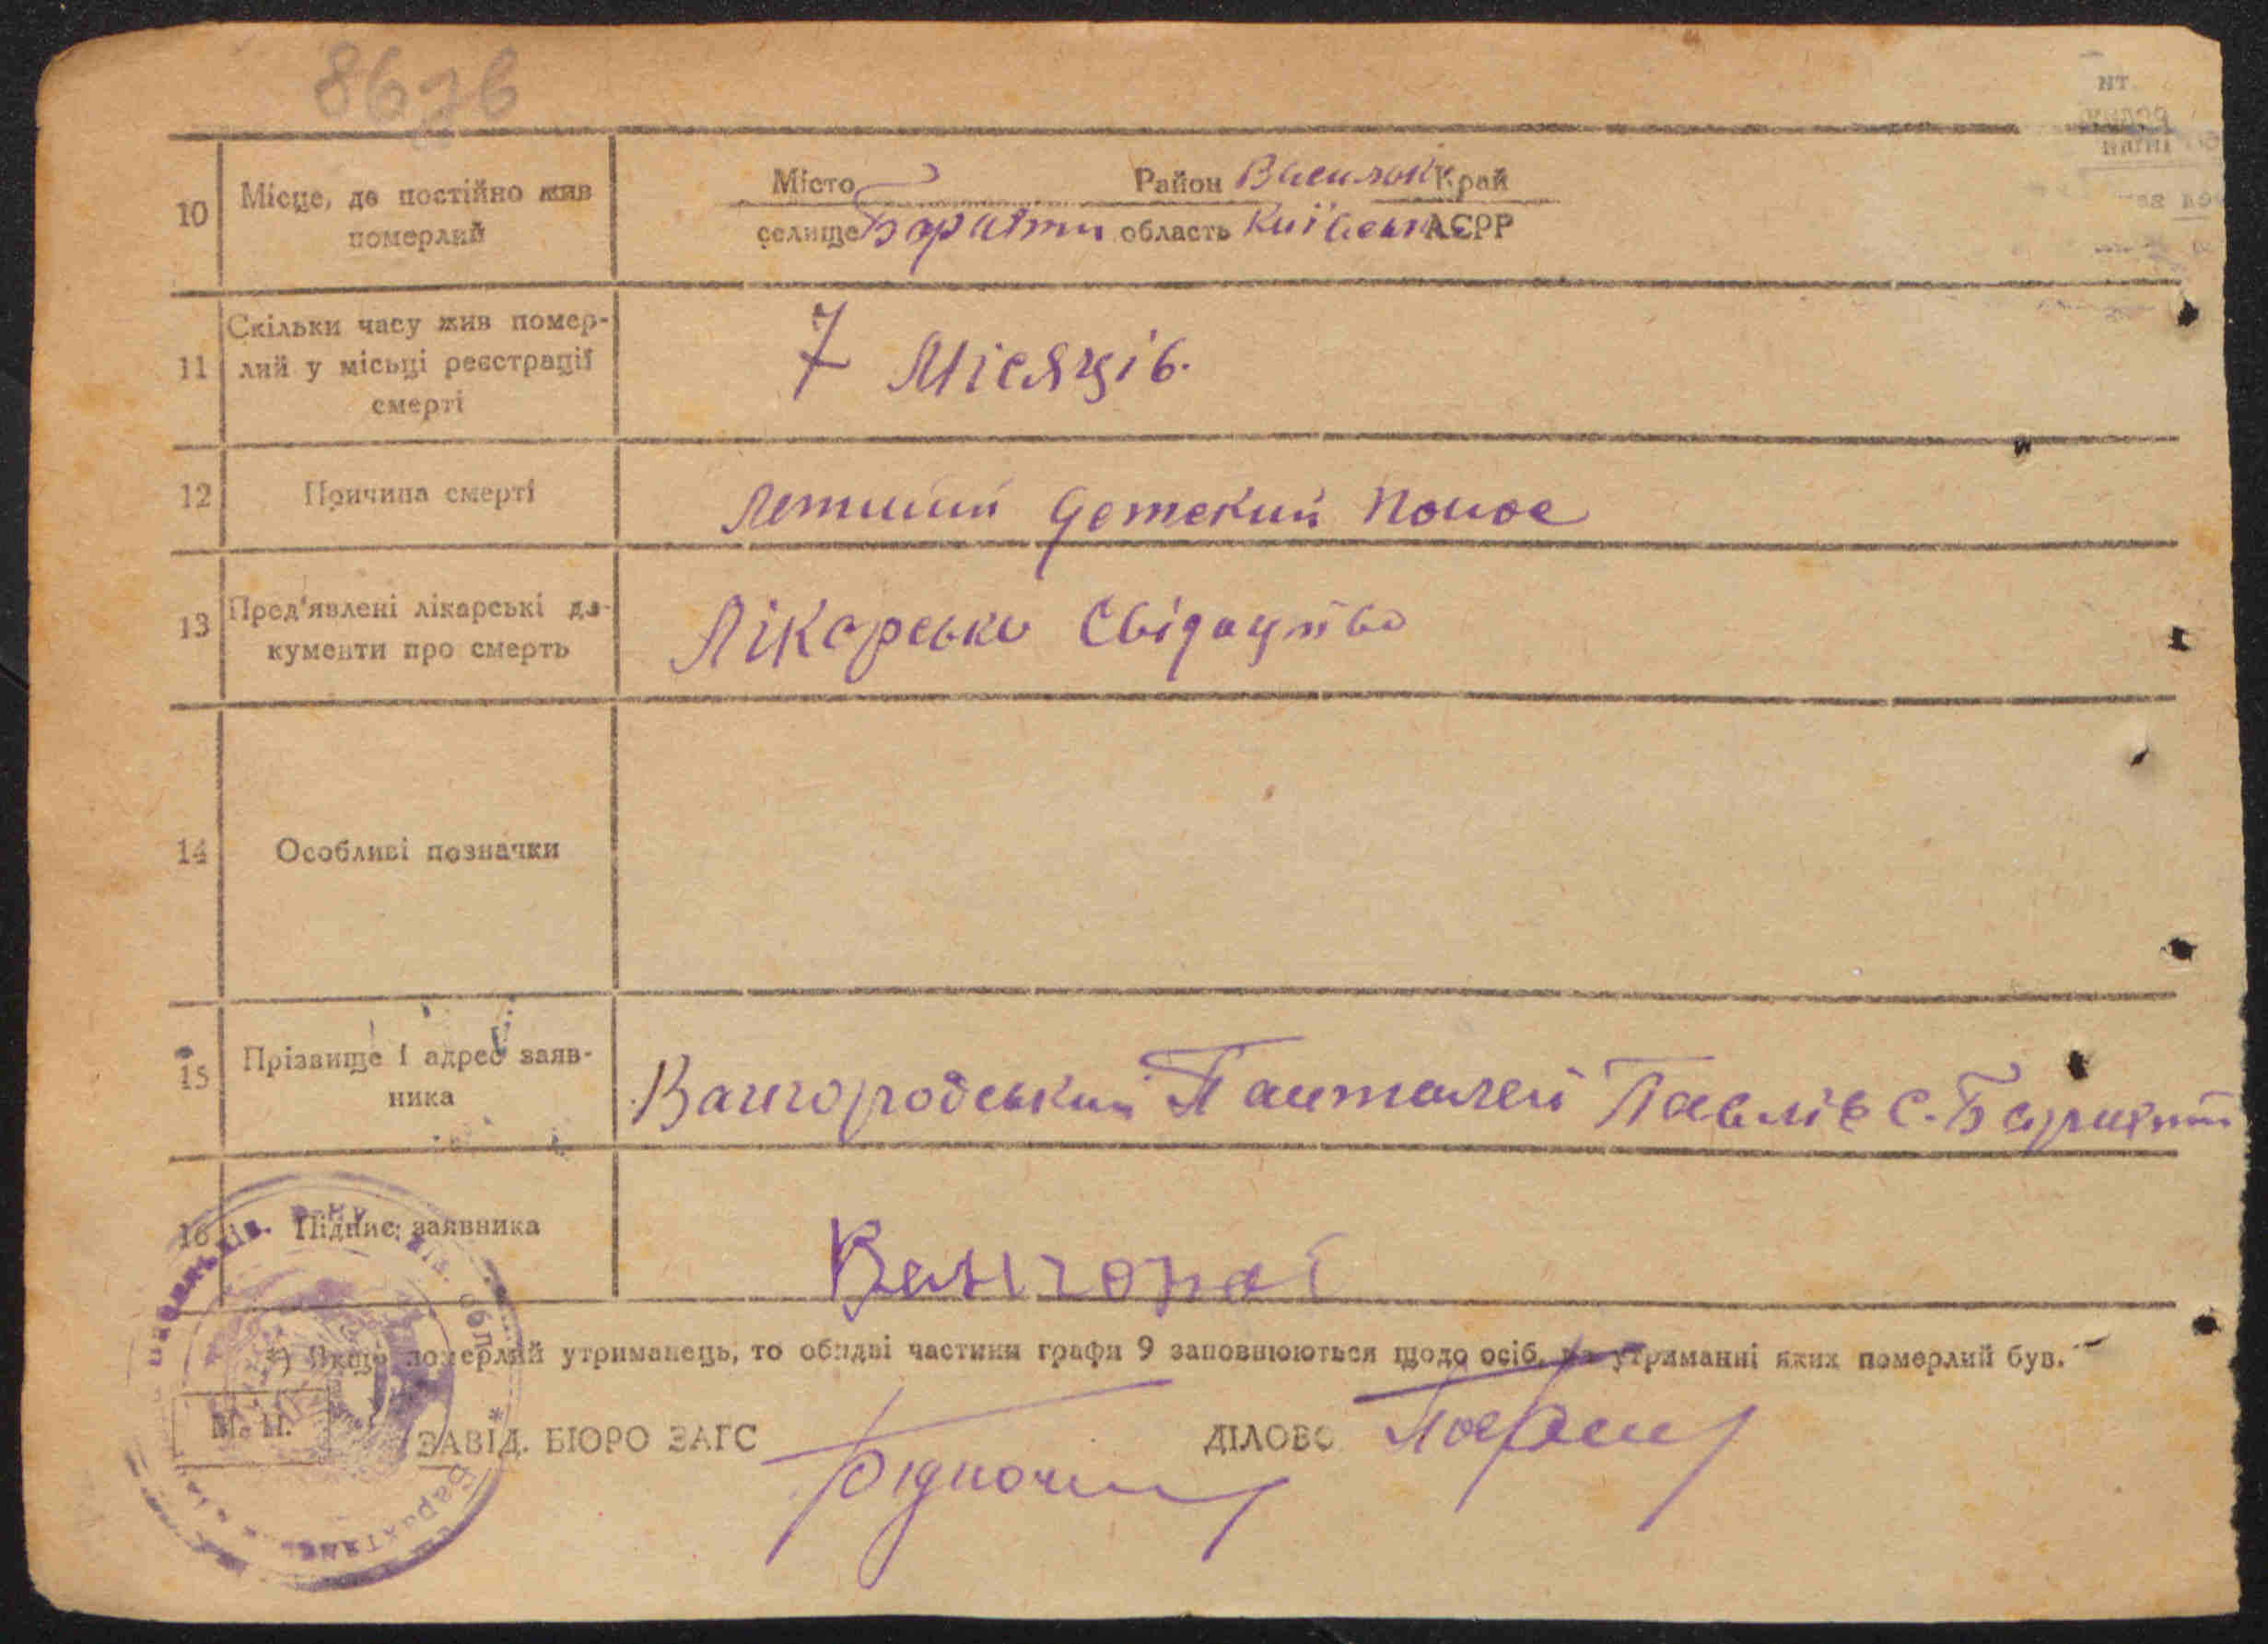 10 Місце, де постійно жив померлий
Місто Район Васильк Край
селище Барахти область Київська АСРР
11 Скільки часу жив помер-
лий у місьці реєстрації
смерті
7 Місяців.
12 Причина смерті
летний детский понос
13 Пред'явлені лікарські до-
кументи про смерть
Лікарське свідоцтво
14 Особливі позначки
15 Прізвище і адрес заяв-
ника
Вангородський Панталей Павлів с. Барахти
16 Підпис заявника
Вангород
*) Якщо померлий утриманець, то обидві частини графи 9 заповнюються щодо осіб, на утриманні яких померлий був.
М. П.
ЗАВІД. БЮРО ЗАГС
ДІЛОВО